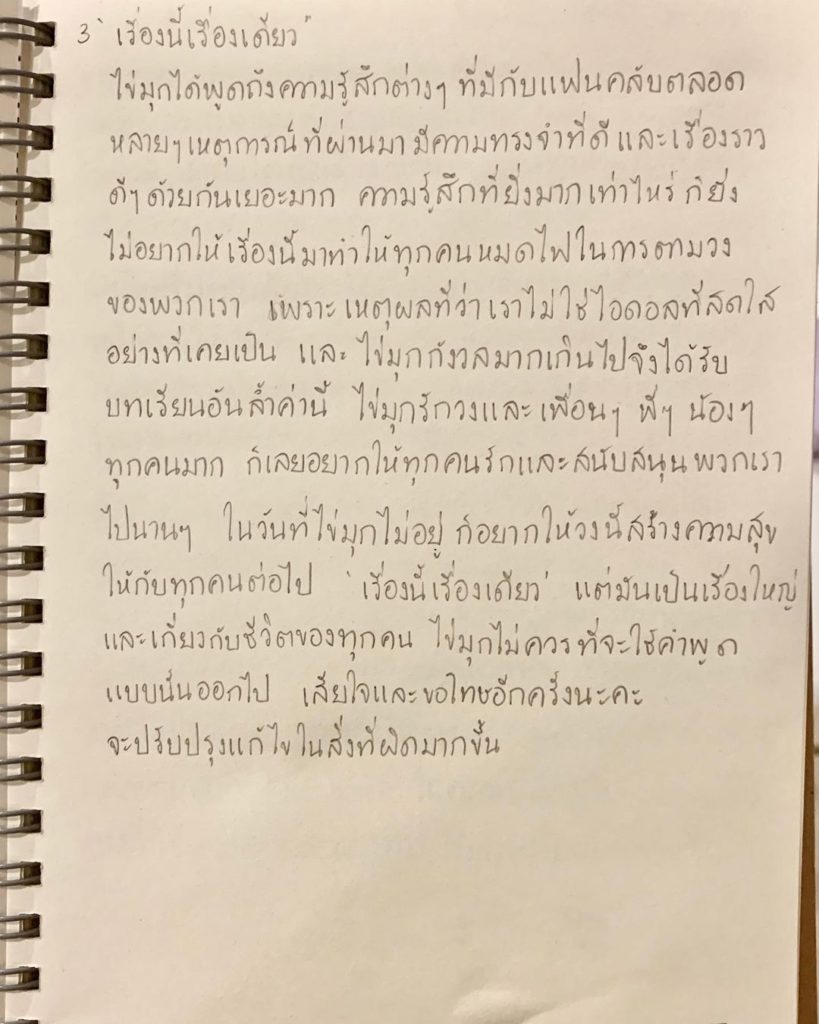 3 "เรื่องนี้เรื่องเดียว"
ไข่มุกได้พูดถึงความรู้สึกต่างๆ ที่มีกับแฟนคลับตลอด
หลายๆเหตุการณ์ที่ผ่านมา มีความทรงจำที่ดี และเรื่องราว
ดีๆด้วยกันเยอะมาก ความรู้สึกที่ยิ่งมากเท่าไหร่ ก็ยิ่ง
ไม่อยากให้เรื่องนี้มาทำให้ทุกคนหมดไฟในการตามวง
ของพวกเรา เพราะเหตุผลที่ว่าเราไม่ใช่ไอดอลที่สดใส
อย่างที่เคยเป็น และ ไข่มุกกังวลมากเกินไปจึงได้รับ
บทเรียนอันล้ำค่านี้ ไข่มุกรักวงและเพื่อนๆ พี่ๆ น้องๆ
ทุกคนมาก ก็เลยอยากให้ทุกคนรักและสนับสนุนพวกเรา
ไปนานๆ ในวันที่ไข่มุกไม่อยู่ ก็อยากให้วงนี้สร้างความสุข
ให้กับทุกคนต่อไป 'เรื่องนี้เรื่องเดียว' แต่มันเป็นเรื่องใหญ่
และเกี่ยวกับชีวิตของทุกคน ไข่มุกไม่ควรที่จะใช้คำพูด
แบบนั้นออกไป เสียใจและขอโทษอีกครั้งนะคะ
จะปรับปรุงแก้ไขในสิ่งที่ผิดมากขึ้น